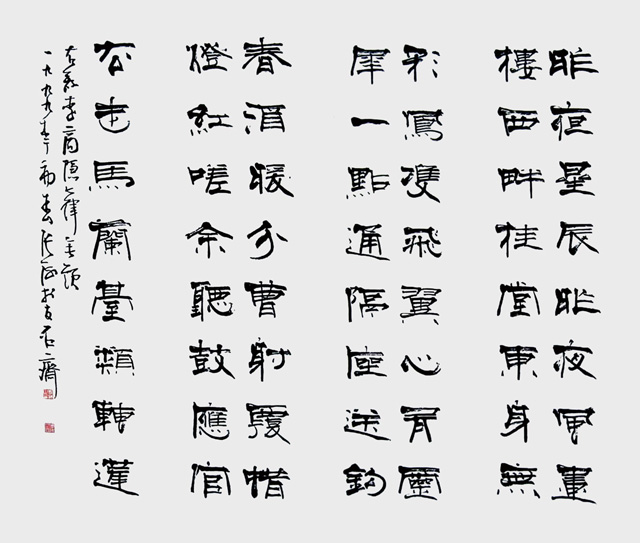 昨夜星辰昨夜風畫
樓西畔桂堂東身無
彩鳳雙飛翼心有靈
犀一點通隔座送鉤
春酒暖分曹射覆蜡
燈紅嗟余聽鼓應官
去走馬蘭臺類轉蓬
李商隱七律無題
一九九九年初春張海於石齋